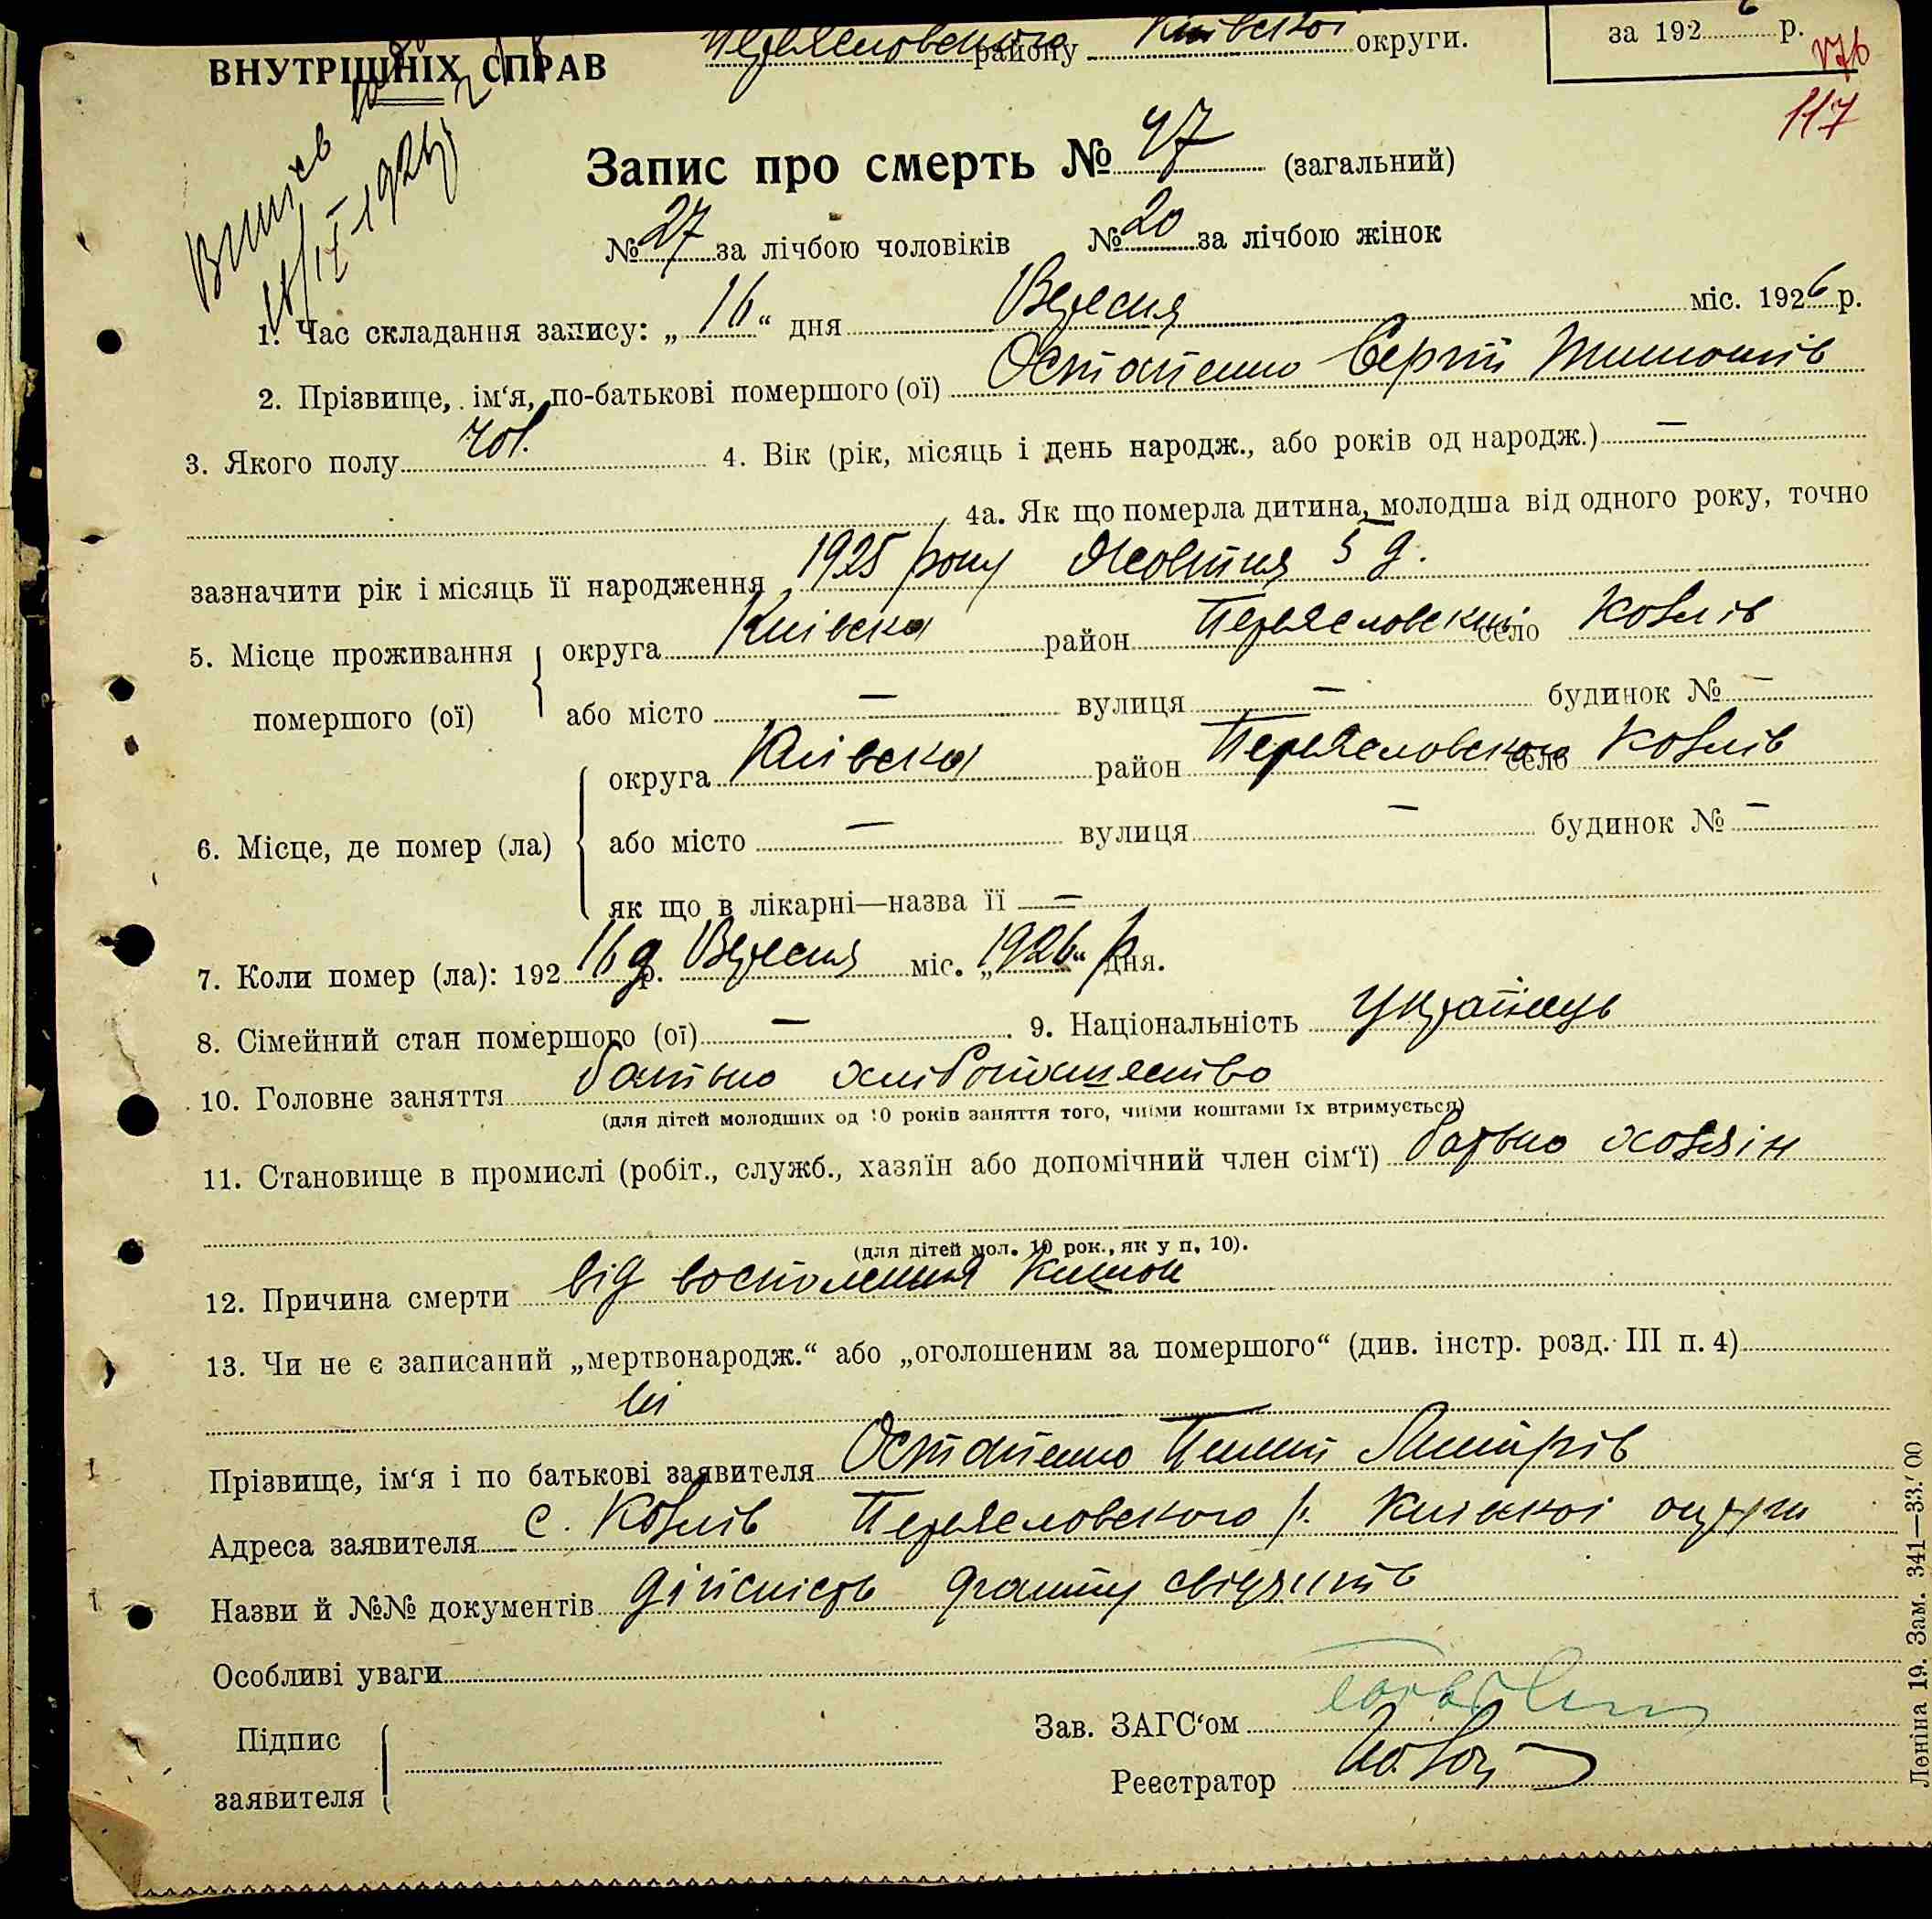 ВНУТРІШНІХ СПРАВ Переясловського району Київскоі округи. за 1926 р.
117
Запис про смерть № 47 (загальний)
№ 27 за лічбою чоловіків № 20 за лічбою жінок
1. Час складання запису: „16“ дня Вересня міс. 1926 р.
2. Прізвище, ім‘я, по-батькові помершого (ої) Остапенко Сергій
3. Якого полу чол. 4. Вік (рік, місяць і день народж., або років од народж.) —
4а. Як що померла дитина, молодша від одного року, точно
зазначити рік і місяць її народження 1925 року Жовтня 5 д.
5. Місце проживання округа Київска район Переясловский село Козлів
помершого (ої) або місто — вулиця — будинок № —
округа Київска район Переясловского село Козлів
6. Місце, де помер (ла) або місто — вулиця — будинок № —
як що в лікарні—назва її —
7. Коли помер (ла): 192 16 д р. Вересня міс. „1926“ р дня.
8. Сімейний стан помершого (ої) — 9. Національність Українець
10. Головне заняття батько хліборобство
(для дітей молодших од 10 років заняття того, чиїми коштами їх втримується)
11. Становище в промислі (робіт., служб., хазяїн або допомічний член сім‘ї) батько хозяін
(для дітей мол. 10 рок., як у п. 10).
12. Причина смерти від воспаления Кишок
13. Чи не є записаний „мертвонародж.“ або „оголошеним за помершого“ (див. інстр. розд. III п. 4)
Ні
Прізвище, ім‘я і по батькові заявителя Остапенко
Адреса заявителя с. Козлів Переясловского р. Київскоі округи
Назви й №№ документів дійсність факту свідчить
Особливі уваги
Підпис Зав. ЗАГС‘ом
заявителя Реєстратор
Леніна 19. Зам. 341—33.